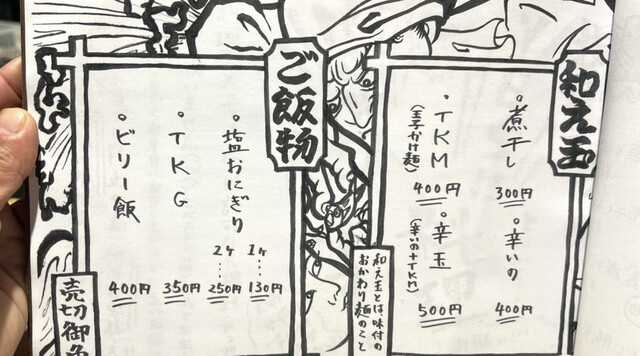 和え玉
・煮干し
300円
・辛いの
400円
・TKM
(玉子かけ麺)
400円
・辛玉
(辛いの+TKM)
500円
和え玉とは、味付の
おかわり麺のこと
ご飯物
・塩おにぎり
1ヶ…130円
2ヶ…250円
・TKG
350円
・ビリー飯
400円
売切御免